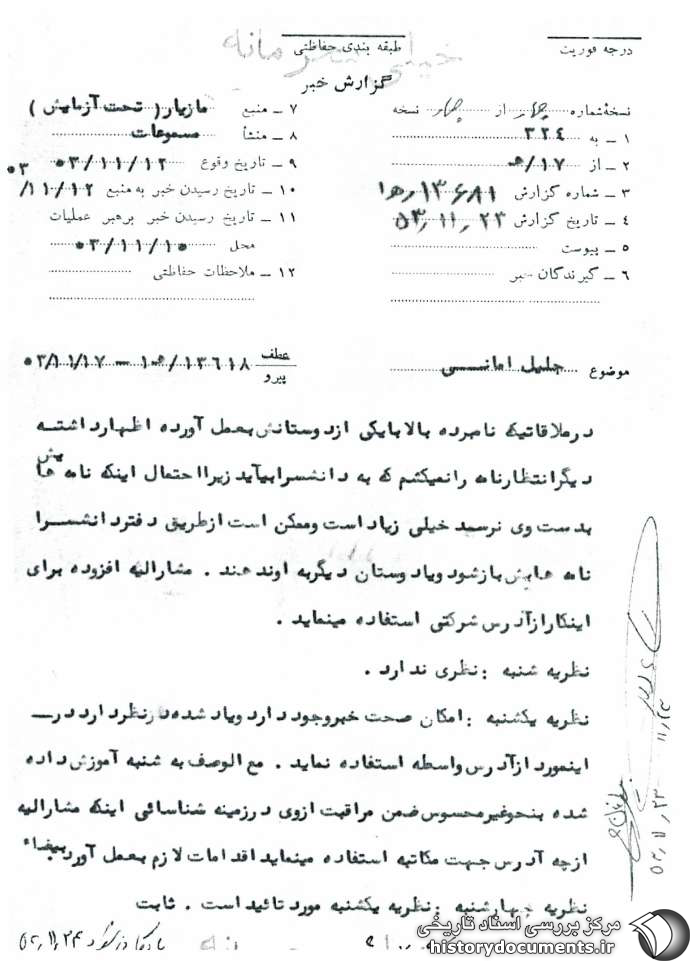 درجه فوریت
طبقه بندی حفاظتی
خیلی محرمانه
گزارش خبر
نسخه شماره چهار از چهار نسخه
۱ ــ به ۳۲٤
۲ ــ از ۱۷/ﻫ
۳ ــ شماره گزارش ۱۳۶۸۱
٤ ــ تاریخ گزارش ۵۳٫۱۱٫۲۳
۵ ــ پیوست
۶ ــ گیرندگان خبر
۷ ــ منبع مازیار( تحت آزمایش )
۸ ــ منشأ مسموعات
۹ ــ تاریخ وقوع ۵۳/۱۱/۱۲
۱۰ ــ تاریخ رسیدن خبر به منبع ۵۳/۱۱/۱۲
۱۱ ــ تاریخ رسیدن خبر برهبر عملیات
محل ۵۳/۱۱/۱۵
۱۲ ــ ملاحظات حفاظتی
موضوع جلیل امانسی
عطف
پیرو
۱۳۶۱۸/ﻫ۱ ــ ۵۳/۱۱/۱۷
درملاقاتیکه نامبرده بالا بایکی ازدوستانش بعمل آورده اظهارداشته
دیگرانتظارنامه رانمیکشم که به دانشسرابیآید زیرااحتمال اینکه نامه ها یش
بدست وی نرسید خیلی زیاد است وممکن است ازطریق دفتردانشسرا
نامه هایش بازشود ویاد وستان دیگربه اوندهند . مشارالیه افزوده برای
اینکارازآدرس شرکتی استفاده مینماید .
نظریه شنبه : نظری ندارد .
نظریه یکشنبه : امکان صحت خبروجود دارد ویاد شده درنظردارد در
اینمورد ازآدرس واسطه استفاده نماید . مع الوصف به شنبه آموزش داده
شده بنحوغیرمحسوس ضمن مراقبت ازوی درزمینه شناسائی اینکه مشارالیه
ازچه آدرس جهت مکاتبه استفاده مینماید اقدامات لازم بعمل آورد بیضاء
نظریه چهارشنبه : نظریه یکشنبه مورد تائید است . ثابت
۵۳٫۱۱٫۲۳
۱۱٫۲۳
۵۳٫۱۱٫۲۴
مرکز بررسی اسناد تاریخی
historydocuments.ir